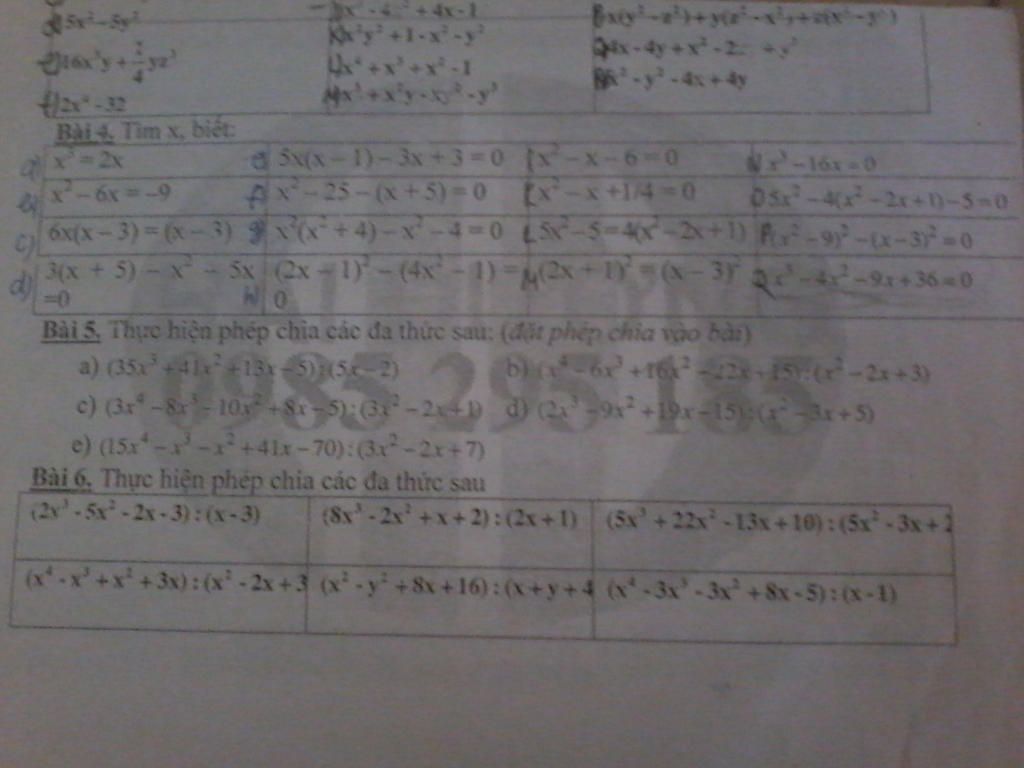 5x² - 5y²
x² + 4x - 1
x(y² - z²) + y(z² - x²) + z(x² - y²)
x²y² + 1 - x² - y²
4x - 4y + x² - 2 + y²
16x³y + yz³
x⁴ + x³ + x² - 1
x² - y² - 4x + 4y
f) 2x⁴ - 32
x³ + x²y - xy² - y³
Bài 4. Tìm x, biết:
a) x³ = 2x e) 5x(x – 1) – 3x + 3 = 0 x² – x – 6 = 0 x³ – 16x = 0
b) x² – 6x = –9 f) x² – 25 – (x + 5) = 0 x² – x + 1/4 = 0 5x² – 4(x² – 2x + 1) – 5 = 0
c) 6x(x – 3) = (x – 3) g) x²(x² + 4) – x² – 4 = 0 L 5x² – 5 = 4(x² – 2x + 1) (x² – 9)² – (x – 3)² = 0
d) 3(x + 5) – x² – 5x (2x – 1)² – (4x² – 1) = M (2x + 1)² = (x – 3)² x³ – 4x² – 9x + 36 = 0
=0 h) 0
HẢI HUỲNH
Bài 5. Thực hiện phép chia các đa thức sau: (đặt phép chia vào bài)
a) (35x³ + 41x² + 13x – 5):(5x – 2) b) (x⁴ – 6x³ + 16x² – 22x + 15):(x² – 2x + 3)
0985 295 185
c) (3x⁴ – 8x³ – 10x² + 8x – 5):(3x² – 2x + 1) d) (2x³ – 9x² + 19x – 15):(x² – 3x + 5)
e) (15x⁴ – x³ – x² + 41x – 70):(3x² – 2x + 7)
Bài 6. Thực hiện phép chia các đa thức sau
(2x³ - 5x² - 2x - 3) : (x - 3) (8x³ - 2x² + x + 2) : (2x + 1) (5x³ + 22x² - 13x + 10) : (5x² - 3x + 2
(x⁴ - x³ + x² + 3x) : (x² - 2x + 3 (x² - y² + 8x + 16) : (x + y + 4 (x⁴ - 3x³ - 3x² + 8x - 5) : (x - 1)